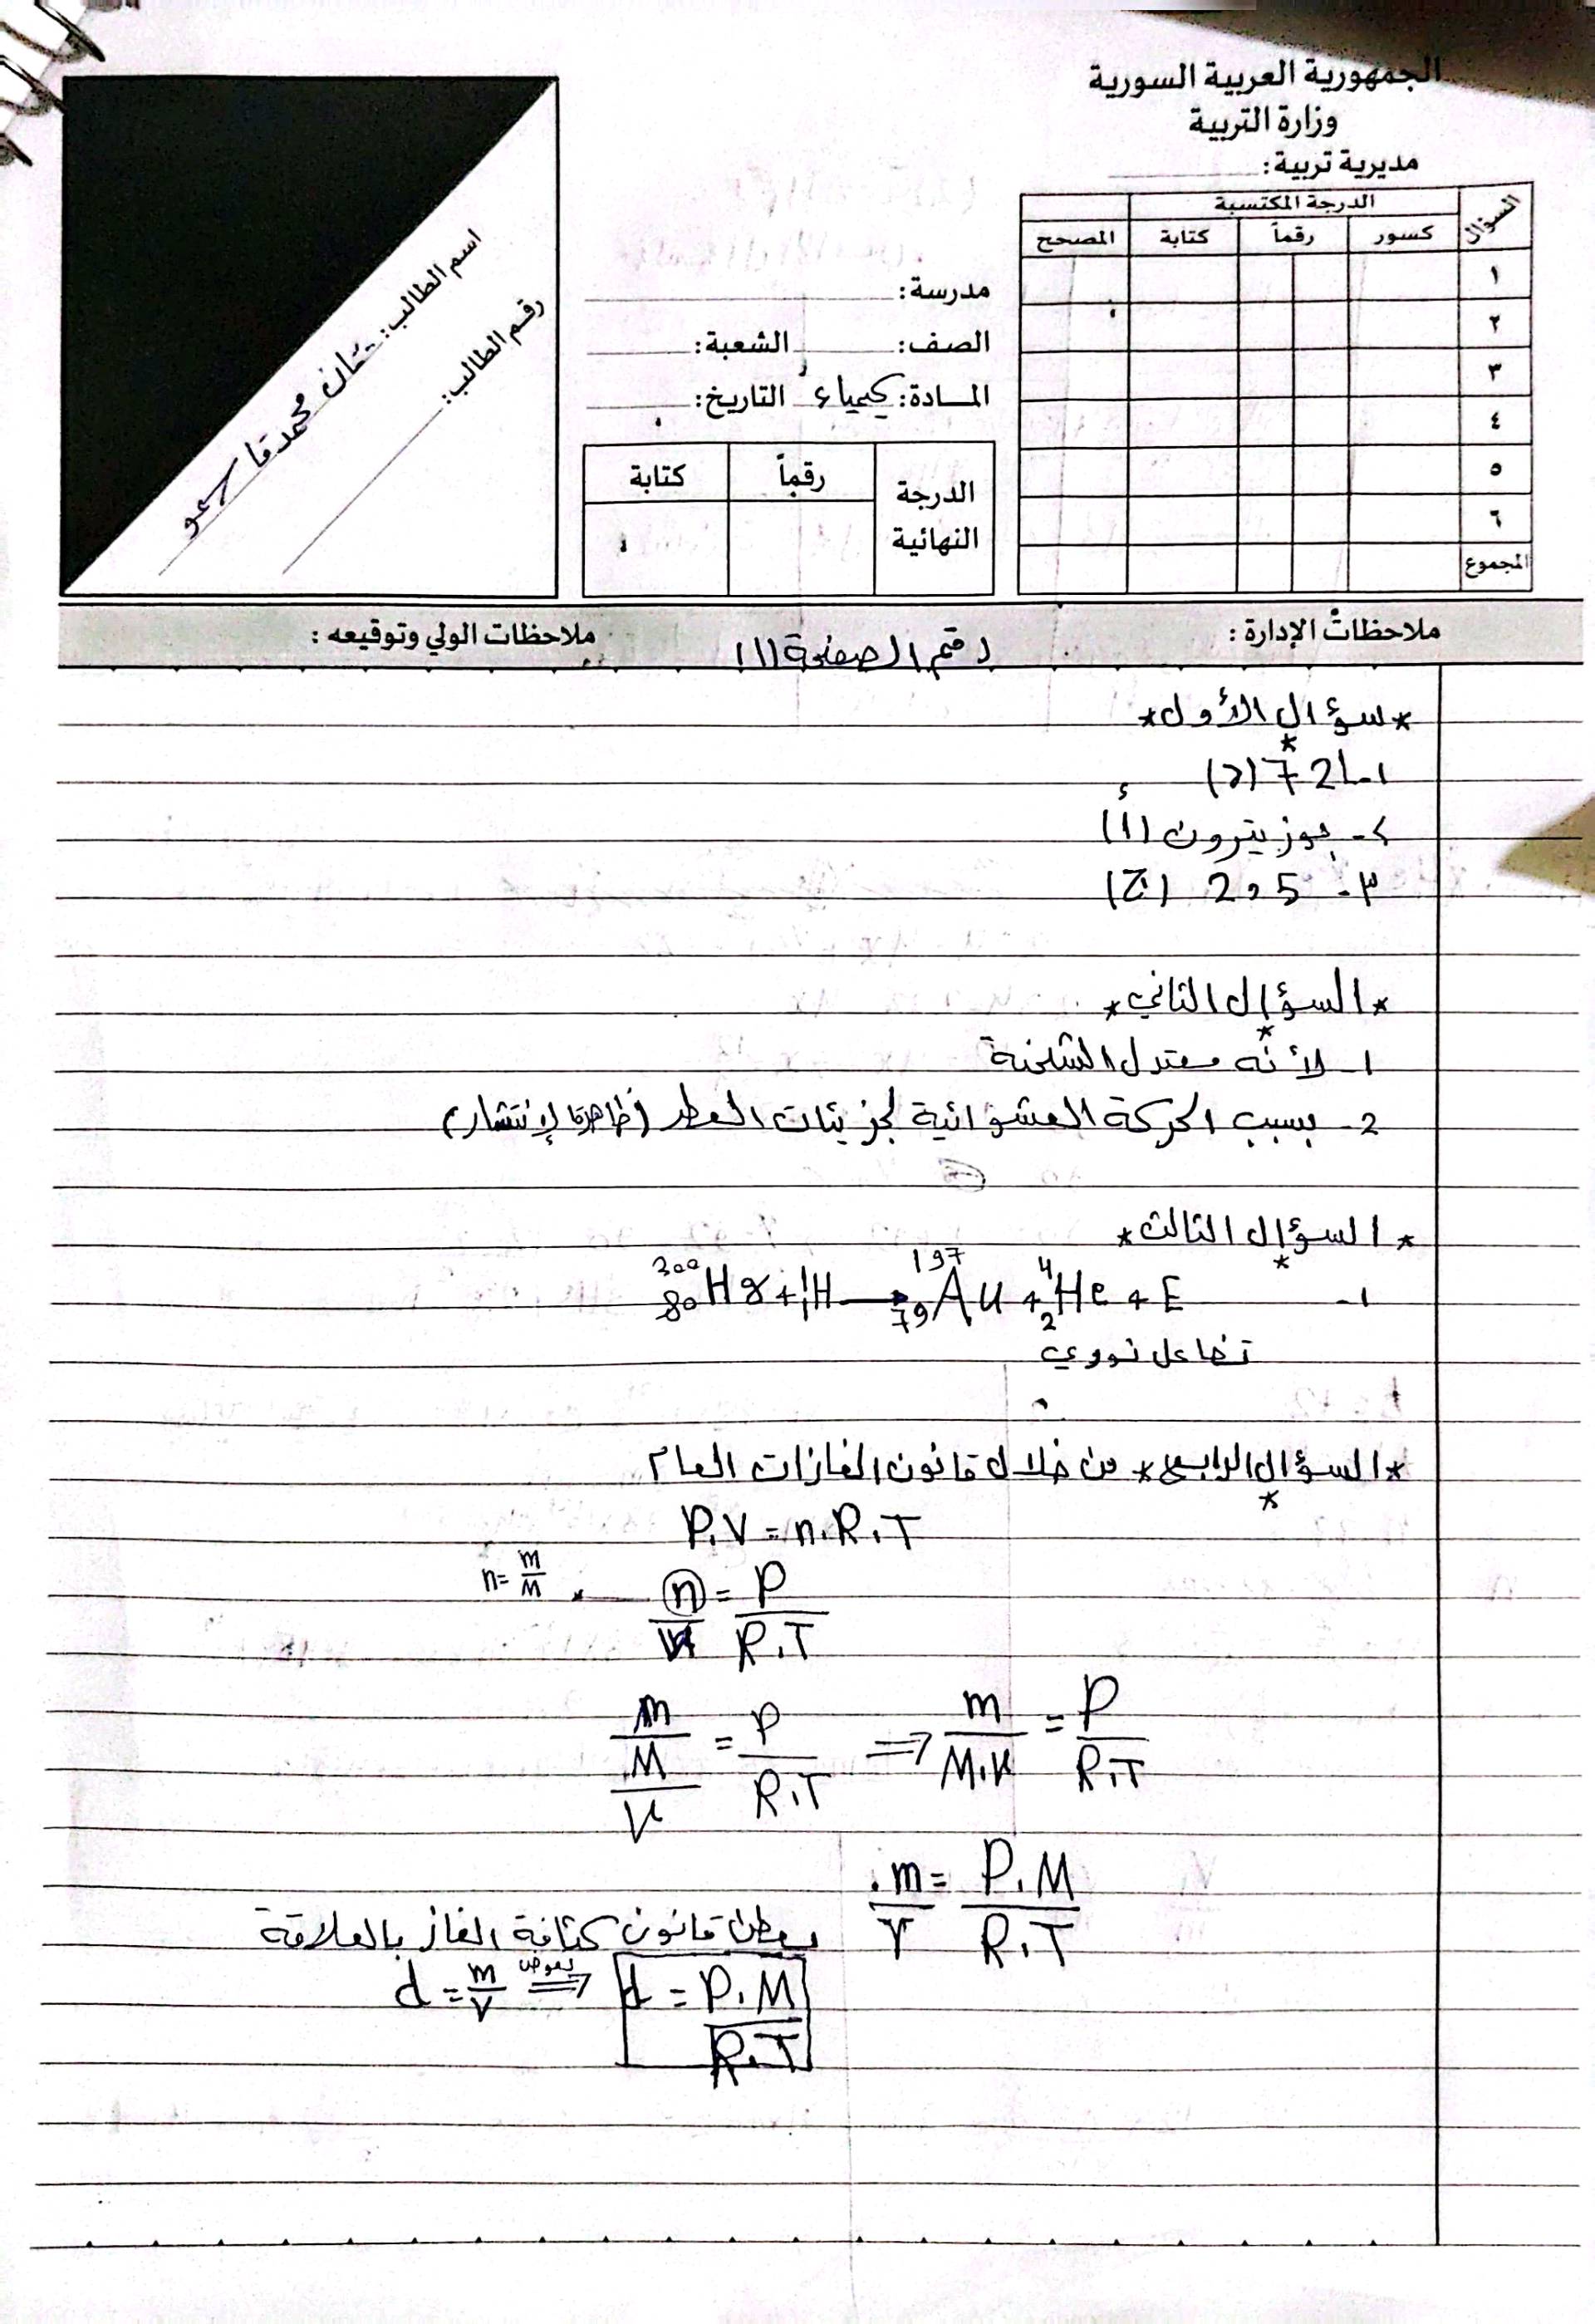 الجمهورية العربية السورية
وزارة التربية
مديرية تربية:
السؤال
الدرجة المكتسبة
كسور رقماً كتابة المصحح
١
٢
٣
٤
٥
٦
المجموع
مدرسة:
الصف: الشعبة:
المادة: كيمياء التاريخ:
الدرجة النهائية رقماً كتابة
اسم الطالب: محمد
رقم الطالب:
ملاحظات الإدارة :
رقم الصفحة (١)
ملاحظات الولي وتوقيعه :
* سؤال الأول *
١- 72 (د)
٢- بوزيترون (أ)
٣- 2,5 (ج)
* السؤال الثاني *
١- لأنّه معتدل الشحنة
2- بسبب الحركة العشوائية لجزيئات العطر (ظاهرة الإنتشار)
* السؤال الثالث *
١- ³⁰⁰₈₀Hg + ¹₁H → ¹⁹⁷₇₉Au + ⁴₂He + E
تفاعل نووي
* السؤال الرابع * من خلال قانون الغازات العام
P.V = n.R.T
n/V = P/R.T
n = m/M
m/M/V = P/R.T ⇒ m/M.V = P/R.T
m/V = P.M/R.T
قانون كثافة الغاز بالعلاقة
d = m/V نعوض ⇒ d = P.M/R.T